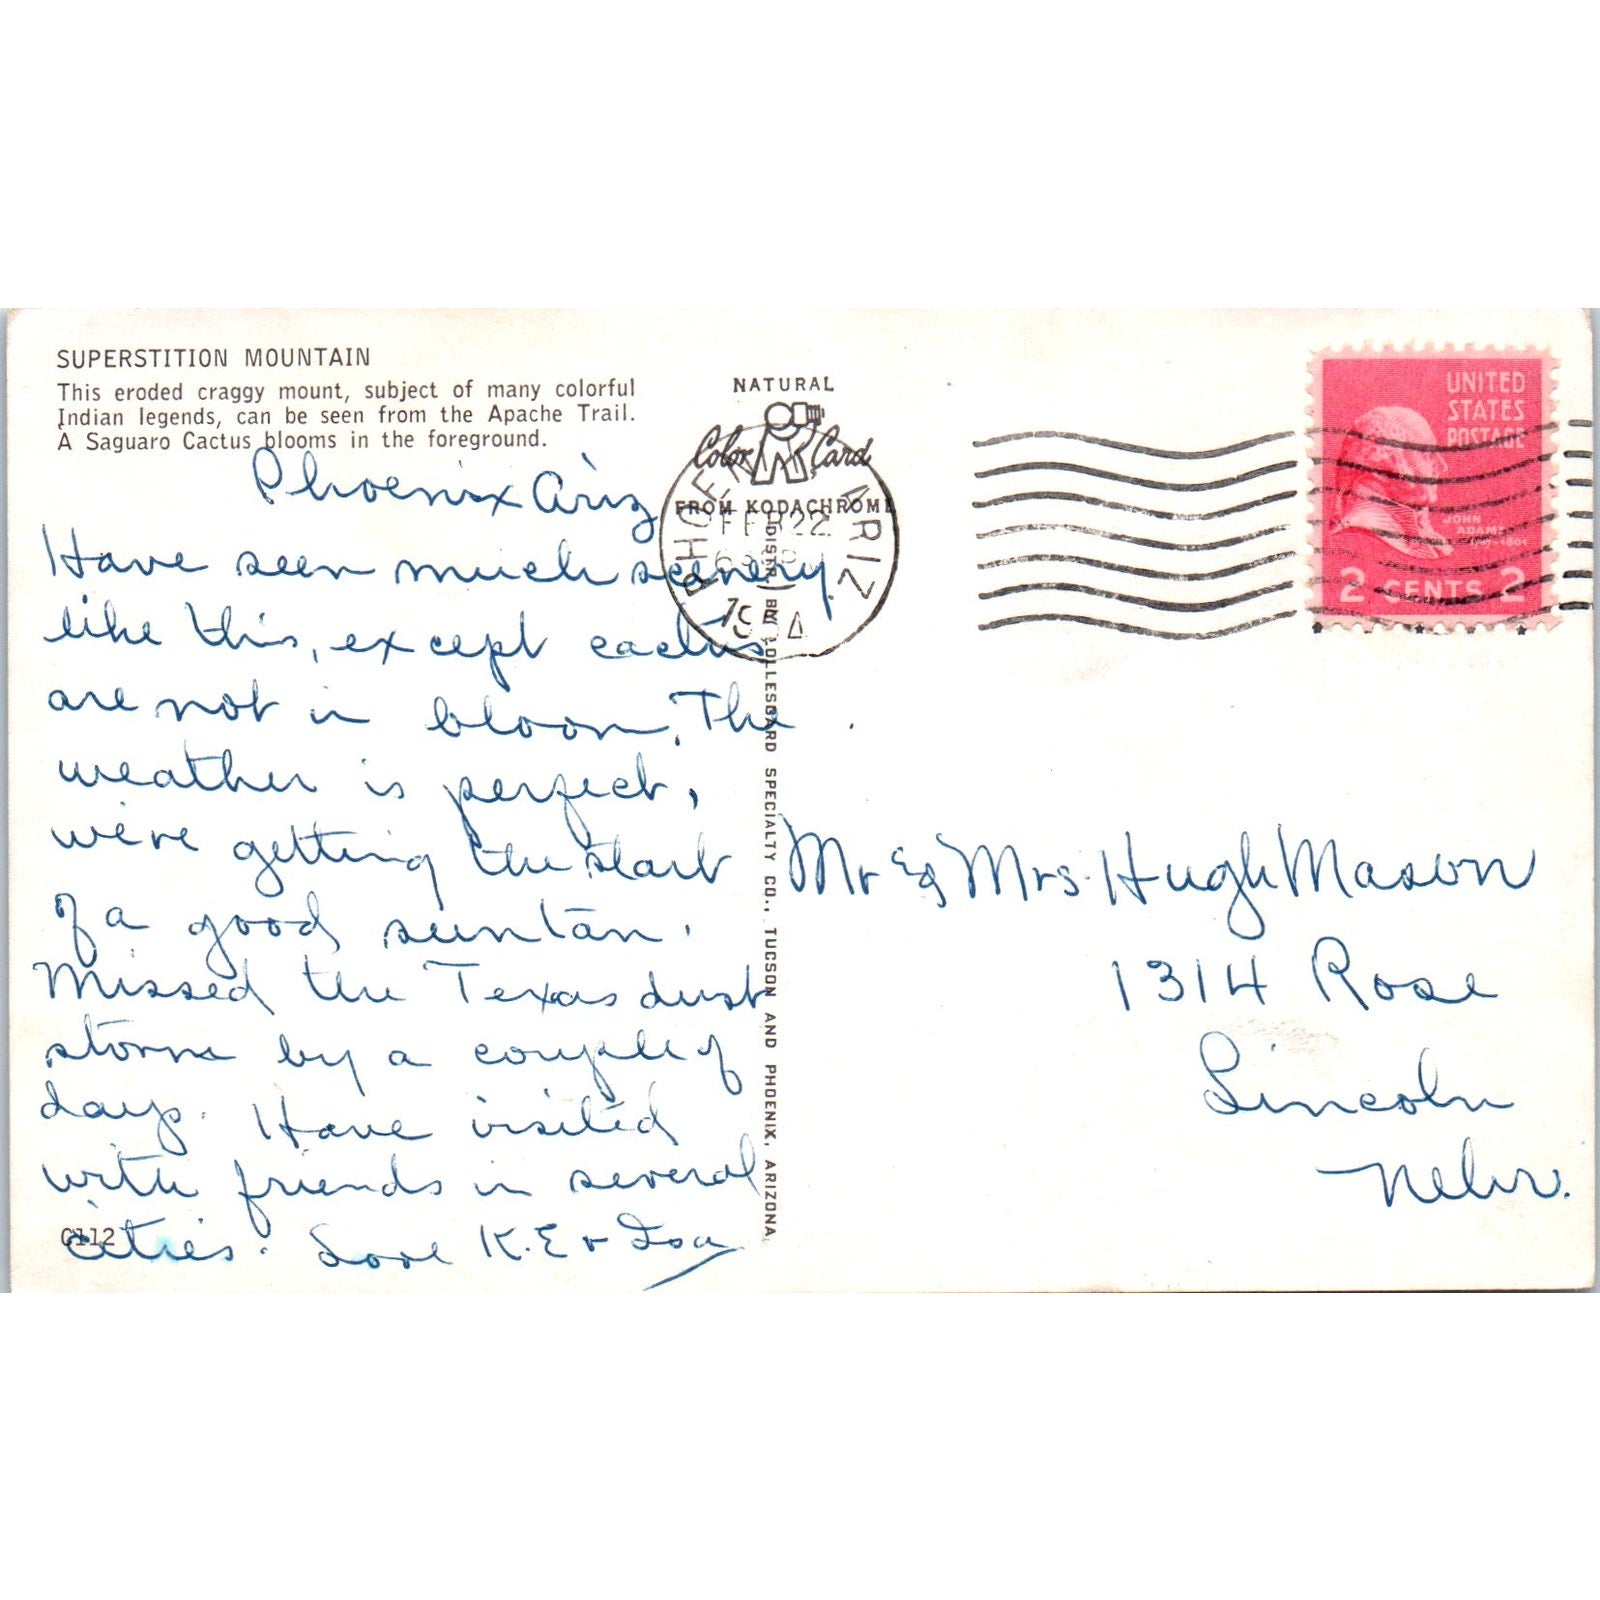 SUPERSTITION MOUNTAIN
This eroded craggy mount, subject of many colorful
Indian legends, can be seen from the Apache Trail.
A Saguaro Cactus blooms in the foreground.
Phoenix Ariz
Have seen much scenery
like this, except cactus
are not in bloom. The
weather is perfect,
we're getting the start
of a good suntan.
Missed the Texas dust
storm by a couple of
days. Have visited
with friends in several
cities. Love K.E & Ioa
C112
NATURAL
Color Card
FROM KODACHROME
DISTR. BY PETLEY COLLESGARD SPECIALTY CO., TUCSON AND PHOENIX, ARIZONA.
PHOENIX ARIZ
FEB 22
1954
UNITED
STATES
POSTAGE
JOHN
ADAMS
1797-1801
2 CENTS 2
Mr & Mrs. Hugh Mason
1314 Rose
Lincoln
Nebr.